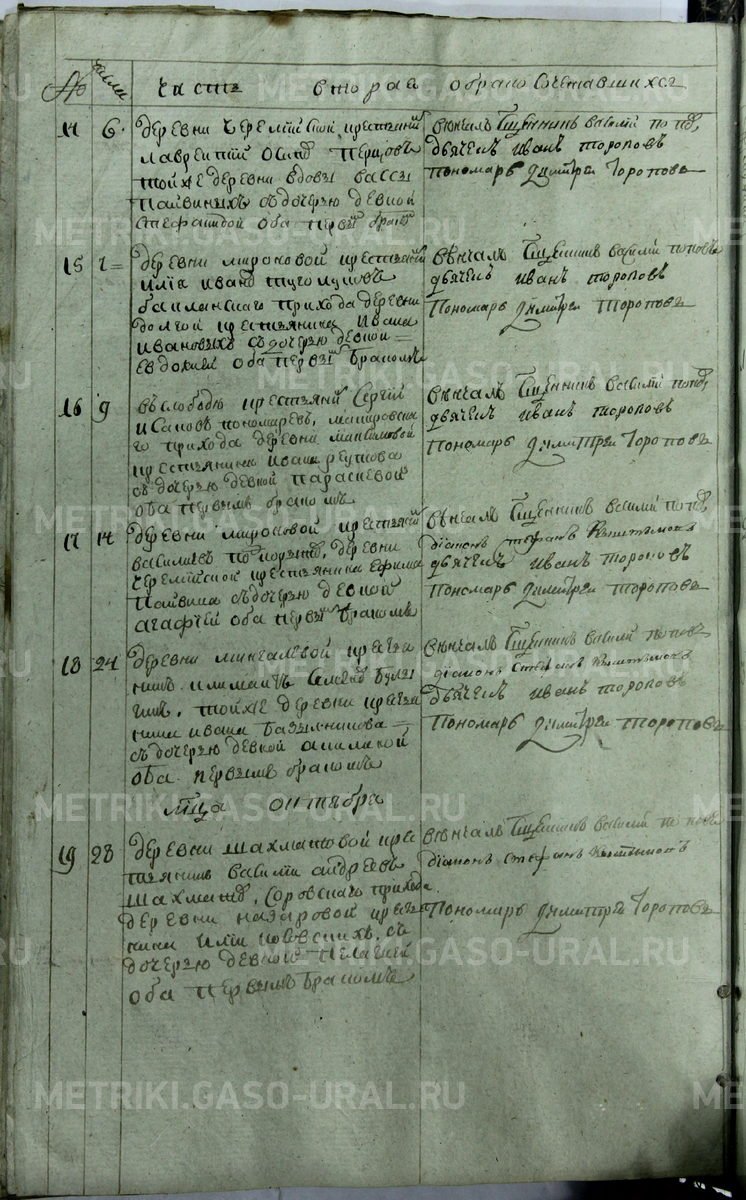 № числа часть вторая о бракосочетавшихся
14 6 деревни Черемиской крестьянинъ
Лаврентий Осиповъ Перцовъ
тойже деревни вдовы Вассы
Пайвиныхъ съ дочерью девкой
Стефанидой оба первы браком
венчалъ Священникъ Василий Поповъ
дьячекъ Иванъ Тороповъ
Пономарь Димитрей Тороповъ
15 деревни Мироновой крестьянинъ
Илиа Иванов
прихода деревни
Долгой крестьянина Ивана
Ивановыхъ съ дочерью девкой
Евдокией оба первы бракомъ
Венчалъ Священникъ Василий Поповъ
дьячекъ Иванъ Тороповъ
Пономарь Димитрей Тороповъ
16 9 въ слободы крестьянинъ Сергий
Исаковъ Пономаревъ,
го прихода деревни Максимовой
крестьянина Ивана Реутова
съ дочерью девкой Параскевой
оба первымъ бракомъ
Венчалъ Священникъ Василий Поповъ
дьячекъ Иванъ Тороповъ
Пономарь Димитрей Тороповъ
17 14 деревни Мироновой крестьянинъ
Василиевъ деревни
Черемиской крестьянина Ефима
Пайвина съ дочерью девкой
Агафией оба первы бракомъ
Венчалъ Священникъ Василий Поповъ
диаконъ Стефанъ
дьячекъ Иванъ Тороповъ
Пономарь Димитрей Тороповъ
18 24 деревни Мингалевой крестья
нинъ Семенов
тойже деревни крестья
нина Ивана
съ дочерью девкой Акилиной
оба первымъ бракомъ
Венчалъ Священникъ Василий Поповъ
диаконъ Стефанъ
дьячекъ Иванъ Тороповъ
Пономарь Димитрей Тороповъ
Мца октября
19 28 деревни Шахматовой крес
тьянинъ Василий Андреевъ
Шахматов, Соровскаго прихода
деревни Назыровой крестья
нина Илии съ
дочерью девкой Пелагией
оба первымъ бракомъ
Венчалъ Священникъ Василий Поповъ
диаконъ Стефанъ
Пономарь Димитрей Тороповъ
METRIKI.GASO-URAL.RU